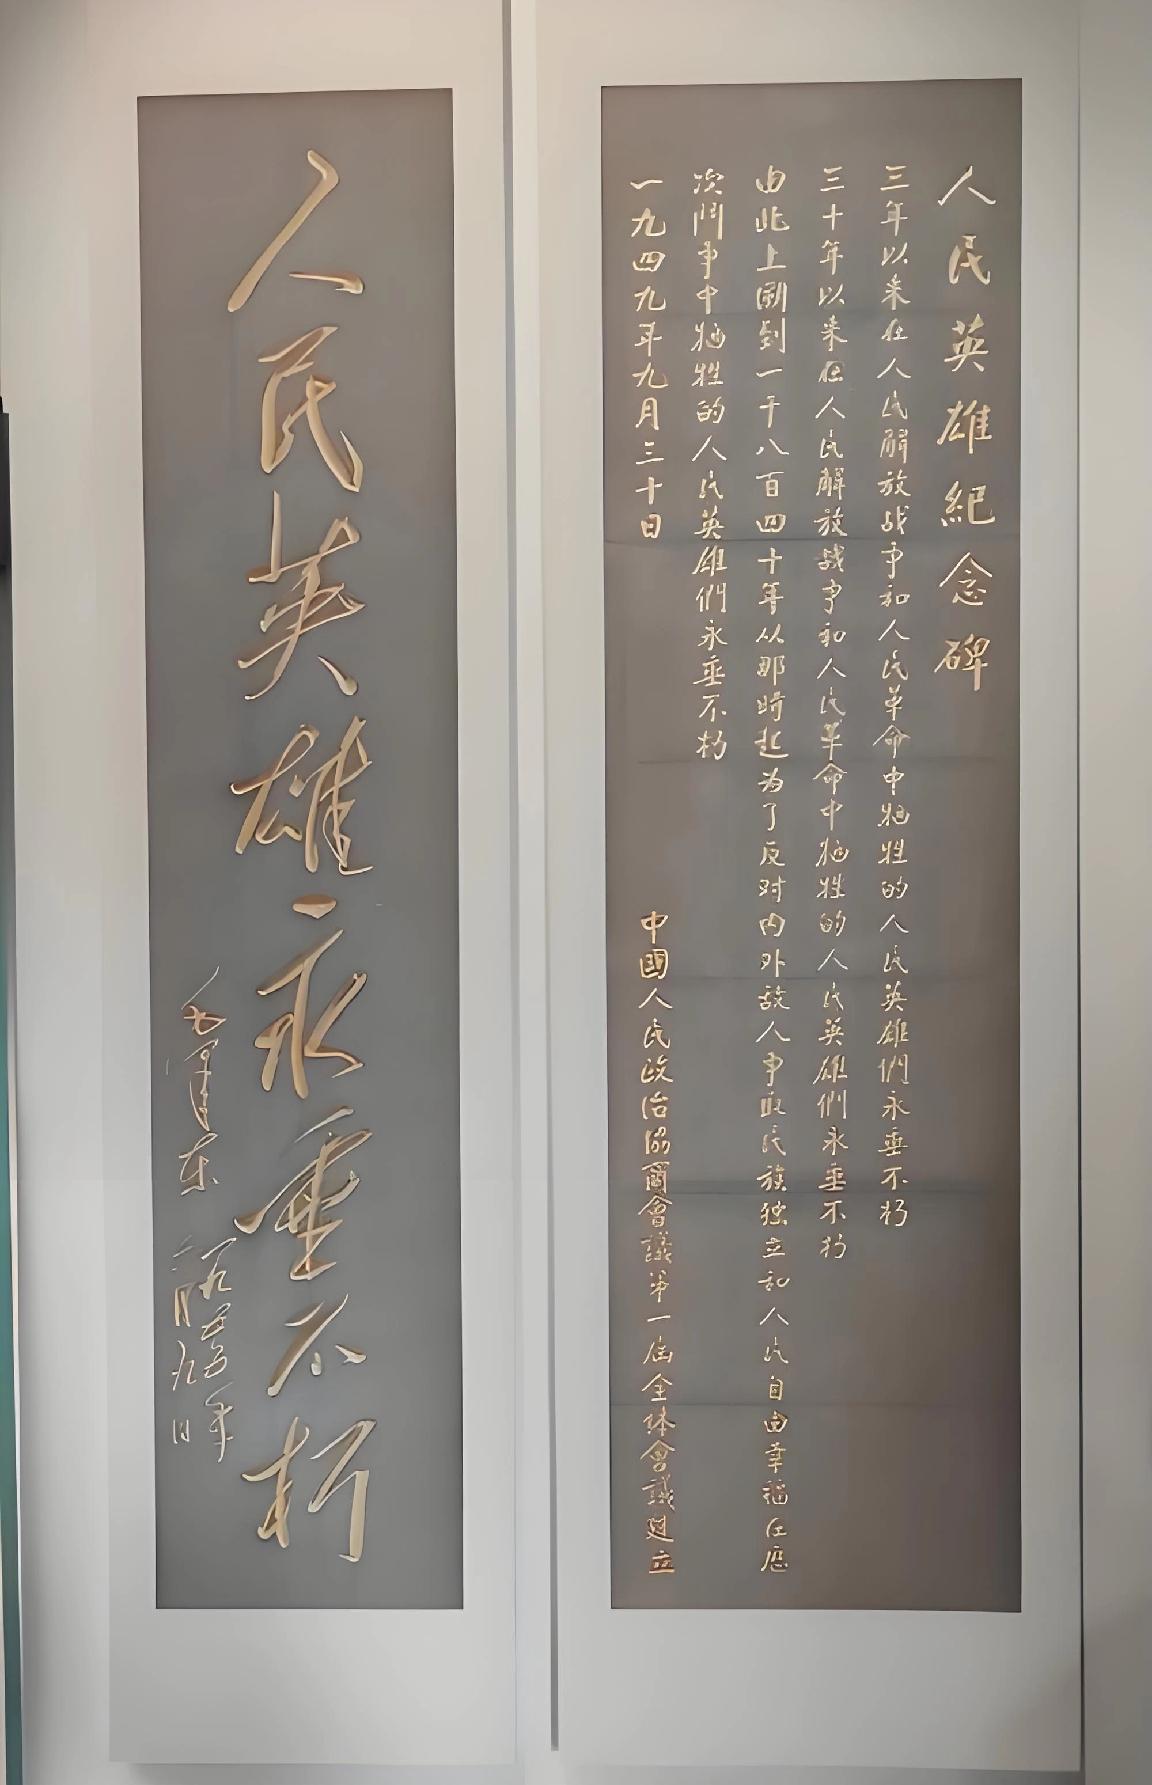 人民英雄紀念碑
三年以来在人民解放战争和人民革命中牺牲的人民英雄們永垂不朽
三十年以来在人民解放战争和人民革命中牺牲的人民英雄們永垂不朽
由此上溯到一千八百四十年从那時起为了反对内外敌人争取民族独立和人民自由幸福在历
次鬥争中牺牲的人民英雄們永垂不朽
一九四九年九月三十日
中國人民政治協商會議第一届全体會議建立
人民英雄永垂不朽
毛澤东
一九五五年
六月九日